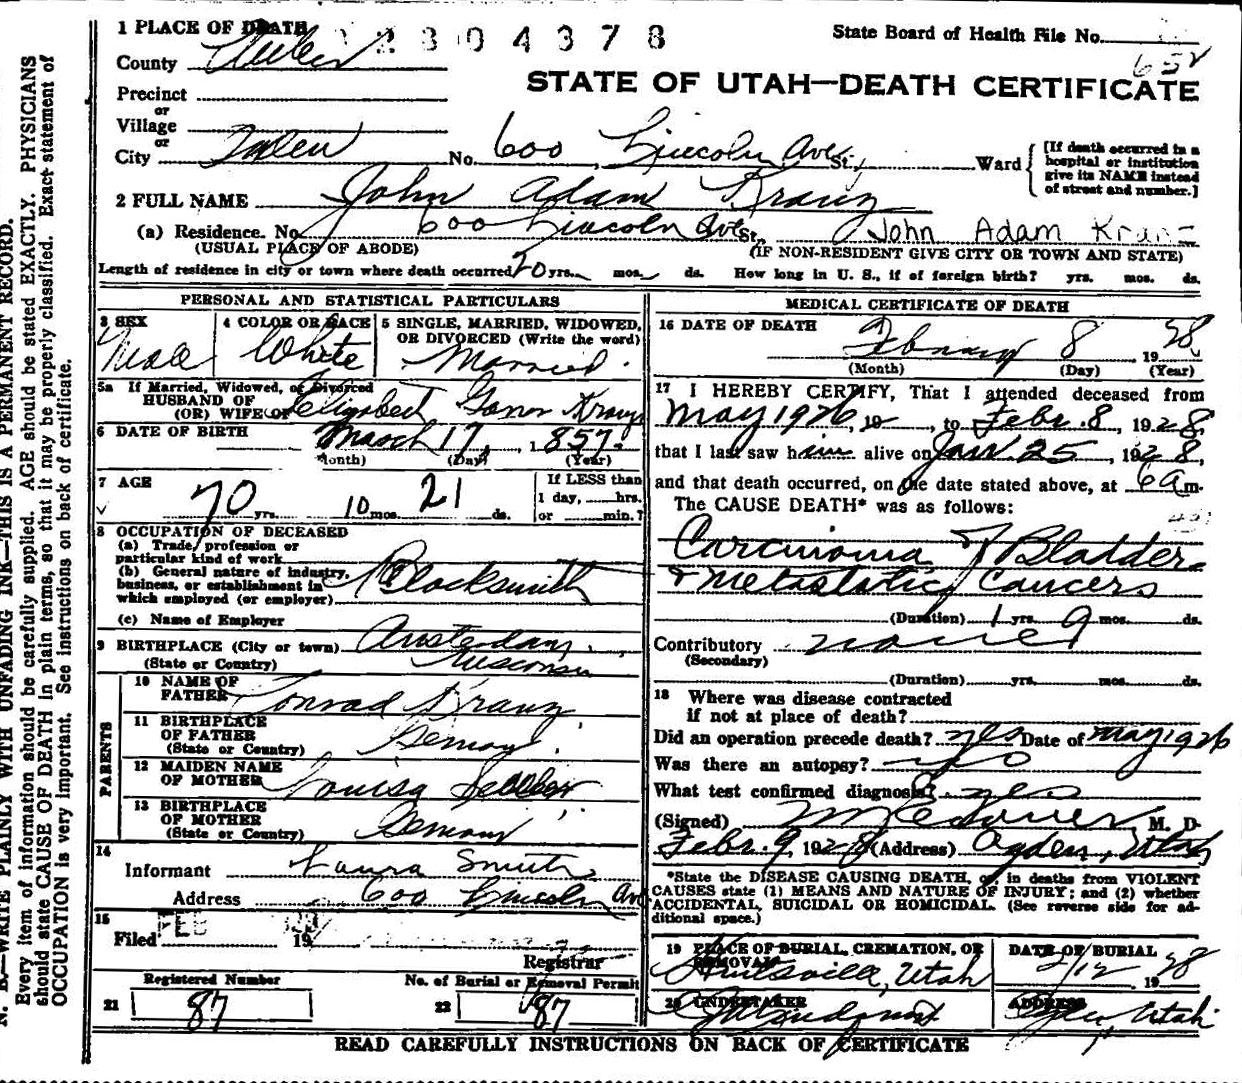 1 PLACE OF DEATH 2304378 State Board of Health File No.
County Weber 652
STATE OF UTAH—DEATH CERTIFICATE
Precinct
or
Village
or
City Ogden No. 600 Lincoln Ave St., Ward [If death occurred in a hospital or institution give its NAME instead of street and number.]
2 FULL NAME John Adam Kranz
(a) Residence. No. 600 Lincoln Ave St., John Adam Kranz
(USUAL PLACE OF ABODE) (IF NON-RESIDENT GIVE CITY OR TOWN AND STATE)
Length of residence in city or town where death occurred 20 yrs. mos. ds. How long in U. S., if of foreign birth? yrs. mos. ds.
PERSONAL AND STATISTICAL PARTICULARS
3 SEX 4 COLOR OR RACE 5 SINGLE, MARRIED, WIDOWED, OR DIVORCED (Write the word)
Male White Married.
5a If Married, Widowed, or Divorced
HUSBAND OF
(OR) WIFE OF Elizabeth Kranz
6 DATE OF BIRTH March 17, 1857.
(Month) (Day) (Year)
7 AGE 70 yrs. 10 mos. 21 ds. If LESS than 1 day, hrs. or min.?
8 OCCUPATION OF DECEASED
(a) Trade, profession or
particular kind of work
(b) General nature of industry,
business, or establishment in
which employed (or employer) Blacksmith
(c) Name of Employer
9 BIRTHPLACE (City or town) Amsterdam,
(State or Country) Wisconsin
PARENTS
10 NAME OF
FATHER Conrad Kranz
11 BIRTHPLACE
OF FATHER
(State or Country) Germany
12 MAIDEN NAME
OF MOTHER Louisa
13 BIRTHPLACE
OF MOTHER
(State or Country) Germany
14
Informant Laura Smith
Address 600 Lincoln Ave
15
Filed FEB 19
Registrar
Registered Number No. of Burial or Removal Permit
21 87 22 87
MEDICAL CERTIFICATE OF DEATH
16 DATE OF DEATH
February 8, 1928
(Month) (Day) (Year)
17 I HEREBY CERTIFY, That I attended deceased from
May 1926, 19, to Febr. 8, 1928,
that I last saw him alive on Jan. 25, 1928,
and that death occurred, on the date stated above, at 6 a m.
The CAUSE DEATH* was as follows:
Carcinoma of Bladder
& metastatic Cancers
(Duration) 1 yrs. 9 mos. ds.
Contributory none
(Secondary)
(Duration) yrs. mos. ds.
18 Where was disease contracted
if not at place of death?
Did an operation precede death? yes Date of May 1926
Was there an autopsy? no
What test confirmed diagnosis? yes
(Signed) M. D.
Febr. 9, 1928 (Address) Ogden, Utah
*State the DISEASE CAUSING DEATH, or, in deaths from VIOLENT
CAUSES state (1) MEANS AND NATURE OF INJURY; and (2) whether
ACCIDENTAL, SUICIDAL OR HOMICIDAL. (See reverse side for ad-
ditional space.)
19 PLACE OF BURIAL, CREMATION, OR REMOVAL DATE OF BURIAL
Huntsville, Utah 2/12 1928
20 UNDERTAKER ADDRESS
Ogden, Utah
READ CAREFULLY INSTRUCTIONS ON BACK OF CERTIFICATE
N. B.—WRITE PLAINLY WITH UNFADING INK—THIS IS A PERMANENT RECORD.
Every item of information should be carefully supplied. AGE should be stated EXACTLY. PHYSICIANS
should state CAUSE OF DEATH in plain terms, so that it may be properly classified. Exact statement of
OCCUPATION is very important. See instructions on back of certificate.